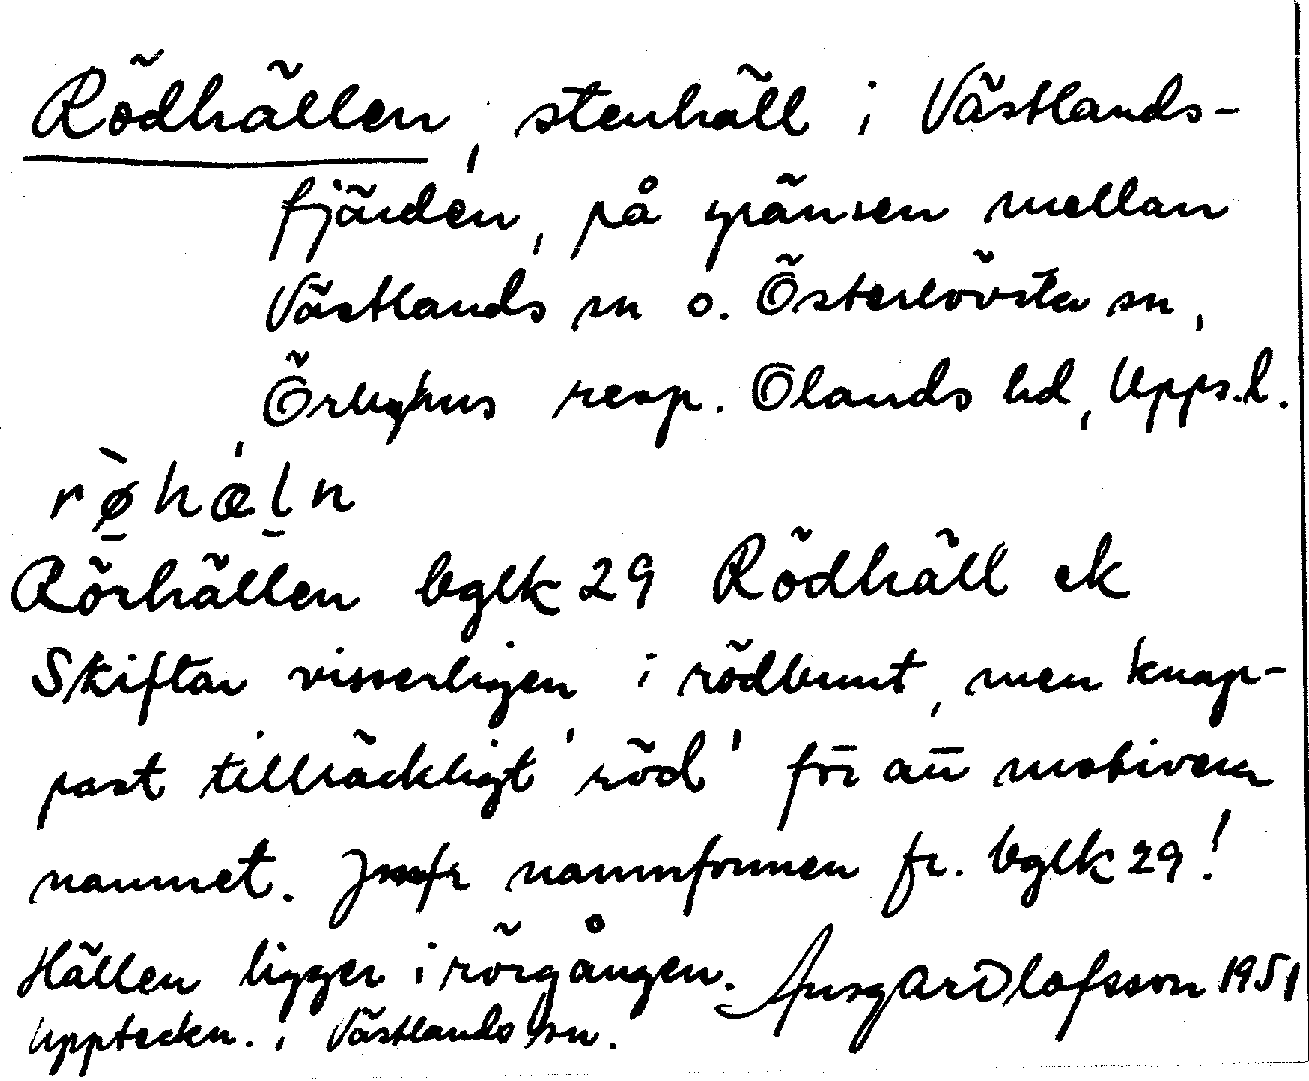 Rödhällen, stenhäll i Västlands-
fjärden, på gränsen mellan
Västlands sn o. Österlövsta sn,
Örbyhus resp. Olands hd, Upps.l.
rø̀hæln
Rörhällen bglk 29 Rödhäll ek
Skiftar visserligen i rödbrunt, men knap-
past tillräckligt 'röd' för att motivera
namnet. Jmfr namnformen fr. bglk 29!
Hällen ligger i rörgången. Ansgar Olofsson 1951
Uppteckn. i Västlands sn.